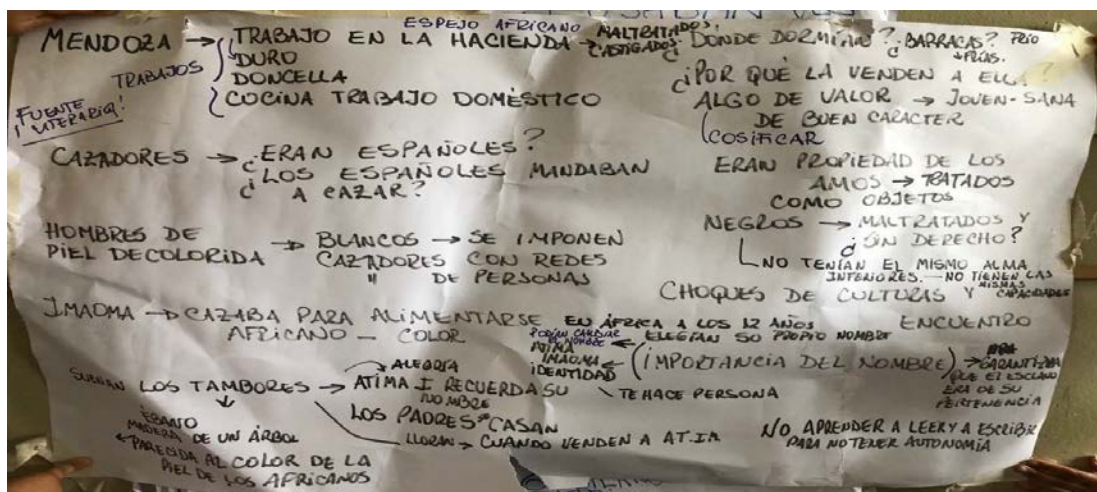 ESPEJO AFRICANO
MENDOZA → TRABAJO EN LA HACIENDA → MALTRATADOS, CASTIGADOS
TRABAJOS
DURO
DONCELLA
COCINA TRABAJO DOMÉSTICO
FUENTE LITERARIA!
CAZADORES → ¿ERAN ESPAÑOLES?
¿LOS ESPAÑOLES MANDABAN
A CAZAR?
HOMBRES DE
PIEL DECOLORIDA → BLANCOS → SE IMPONEN
CAZADORES CON REDES
" DE PERSONAS
IMAOMA → CAZABA PARA ALIMENTARSE
AFRICANO - COLOR
SUENAN LOS TAMBORES → ATIMA I RECUERDA SU
NOMBRE
ALEGRÍA
LOS PADRES SE CASAN
LLORAN → CUANDO VENDEN A AT.IA
ÉBANO
MADERA DE UN ÁRBOL
← PARECIDA AL COLOR DE LA
PIEL DE LOS AFRICANOS
¿DÓNDE DORMÍAN? ¿BARRACAS? FRÍO
FRÍAS.
¿POR QUÉ LA VENDEN A ELLA?
ALGO DE VALOR → JOVEN - SANA
DE BUEN CARACTER
COSIFICAR
ERAN PROPIEDAD DE LOS
AMOS → TRATADOS
COMO OBJETOS
NEGROS → MALTRATADOS Y
¿SIN DERECHO?
NO TENÍAN EL MISMO ALMA
INTERIORES. NO TIENEN LAS
MISMAS
CAPACIDADES
CHOQUES DE CULTURAS Y
ENCUENTRO
EN ÁFRICA A LOS 12 AÑOS
ELEGÍAN SU PROPIO NOMBRE
PODÍAN CAMBIAR
EL NOMBRE
ATIMA
IMAOMA
IDENTIDAD
(IMPORTANCIA DEL NOMBRE) → GARANTIZABA
QUE EL ESCLAVO
ERA DE SU
PERTENENCIA
TE HACE PERSONA
NO APRENDER A LEER Y A ESCRIBIR
PARA NO TENER AUTONOMÍA